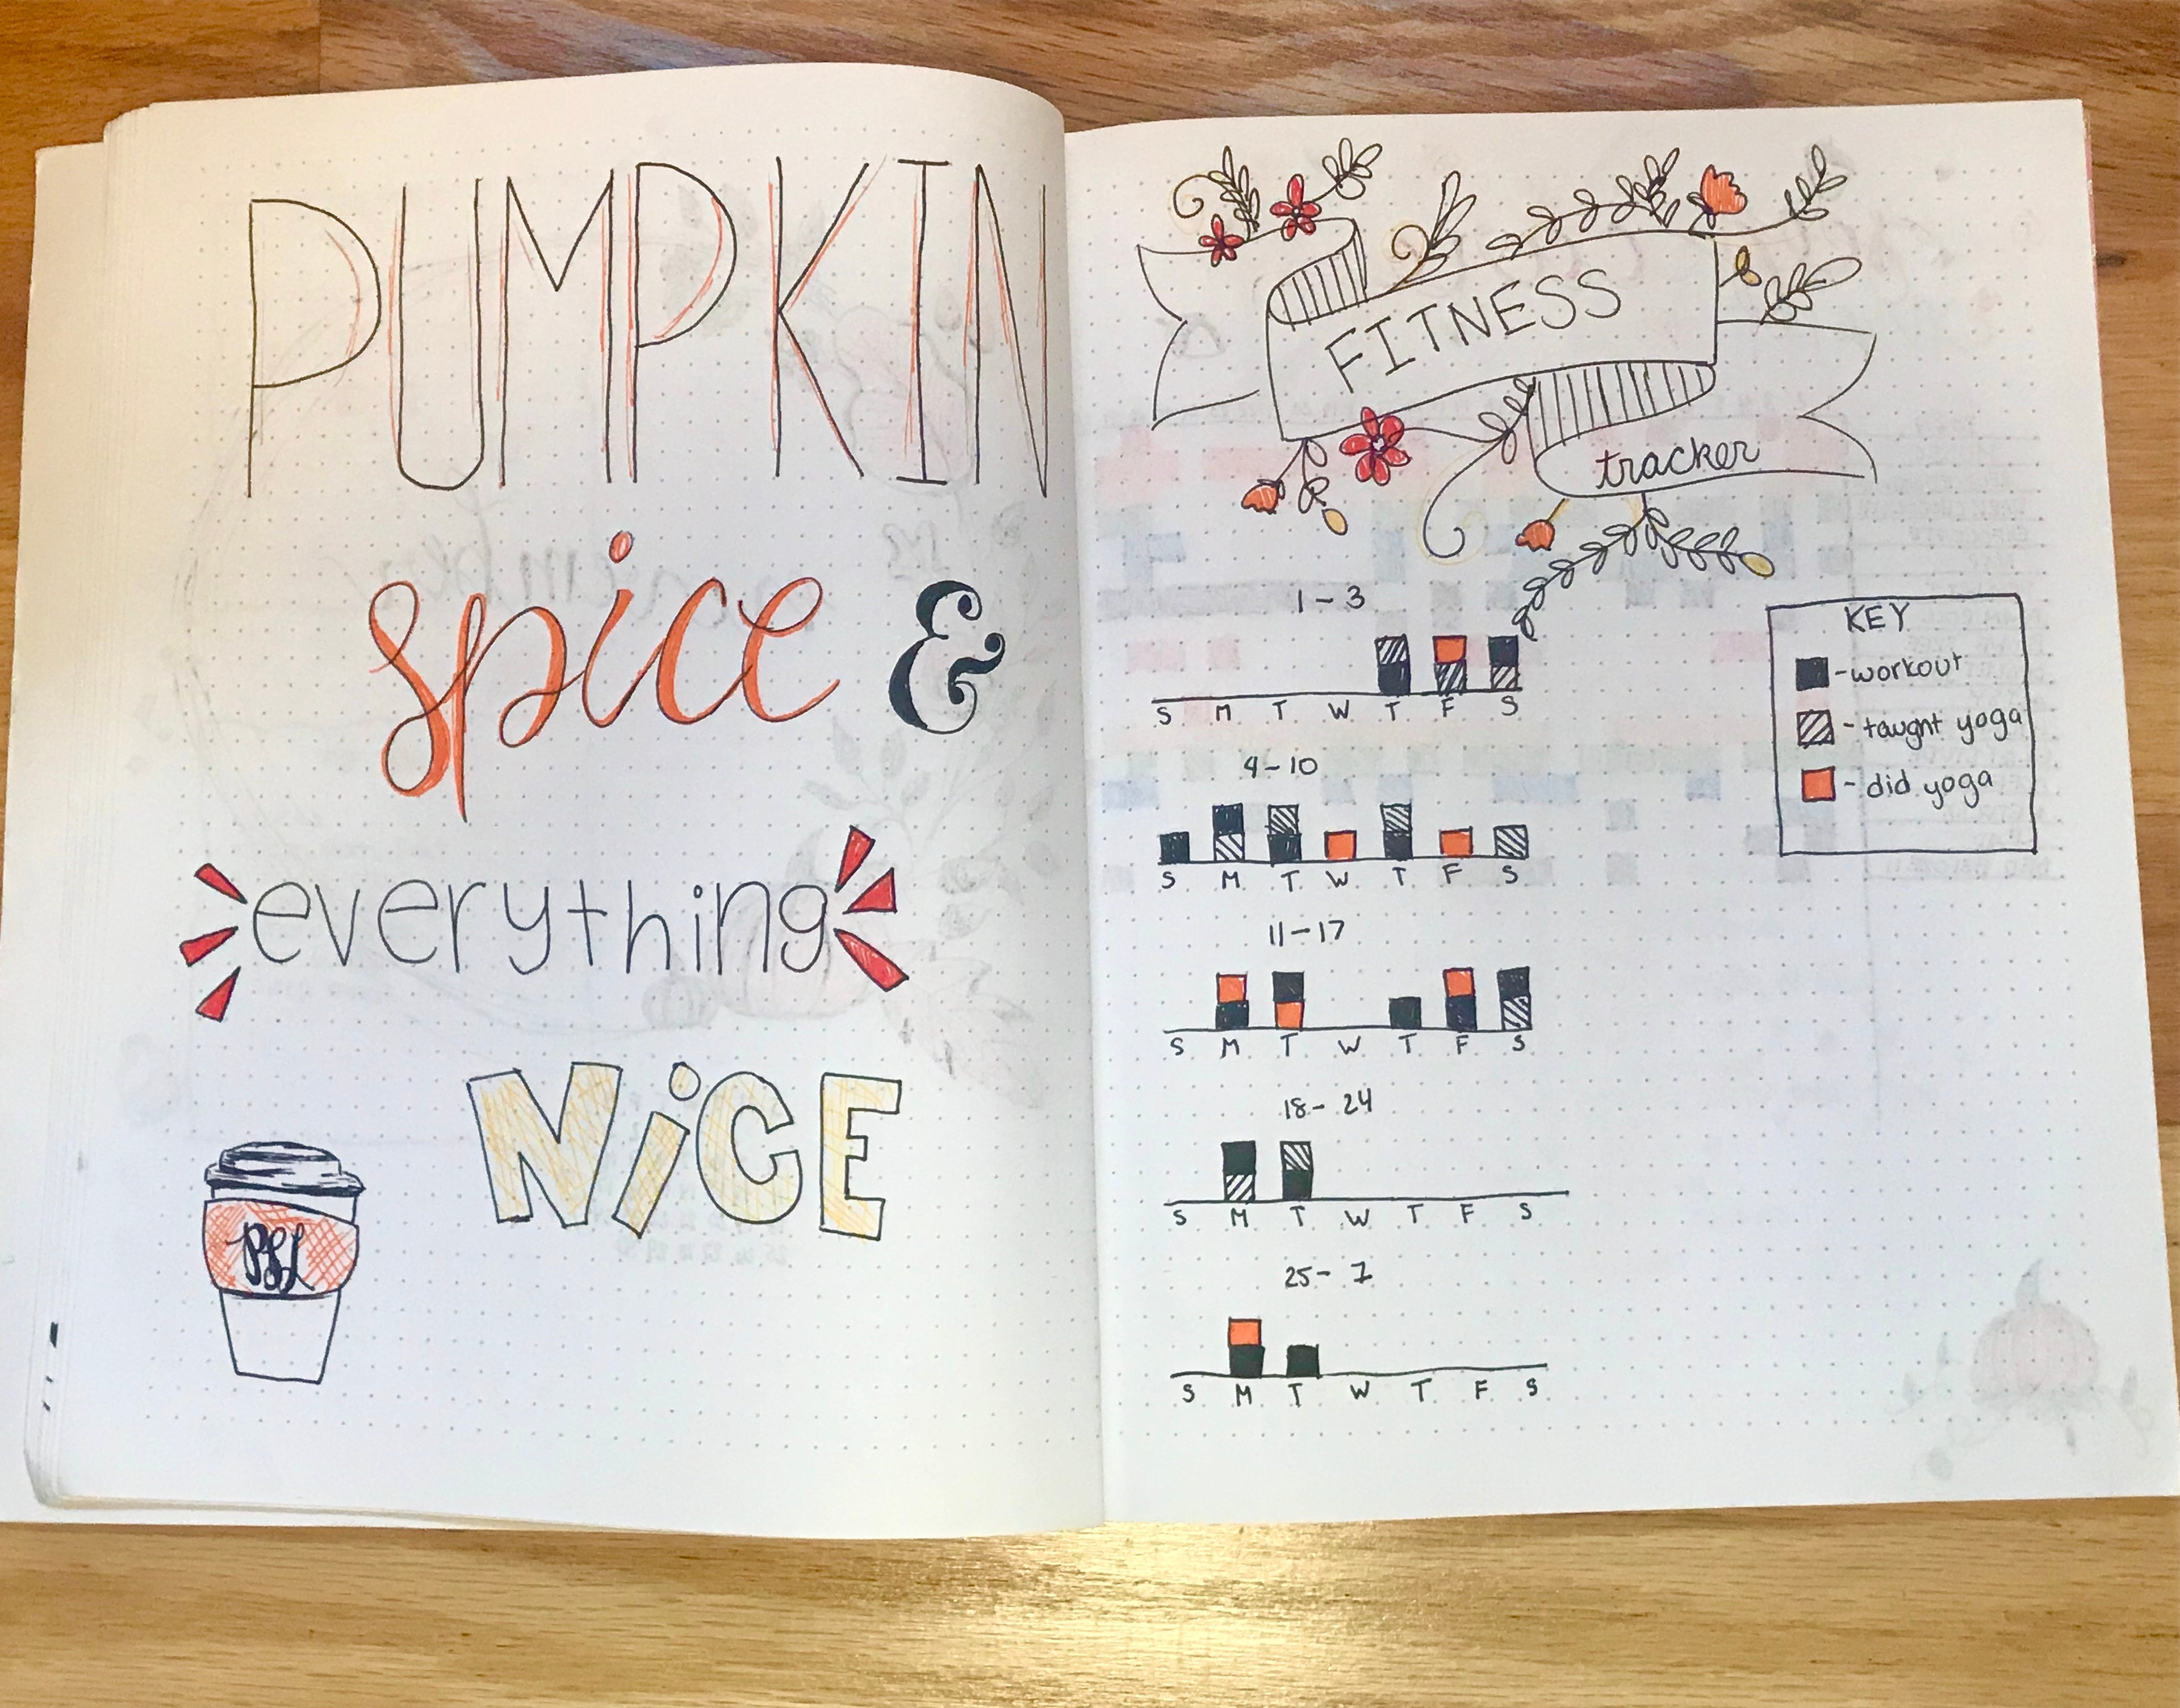 PUMPKIN
spice &
everything
NiCE
PSL
FITNESS
tracker
KEY
-workout
-taught yoga
-did yoga
1-3
S M T W T F S
4-10
S M T W T F S
11-17
S M T W T F S
18-24
S M T W T F S
25-1
S M T W T F S